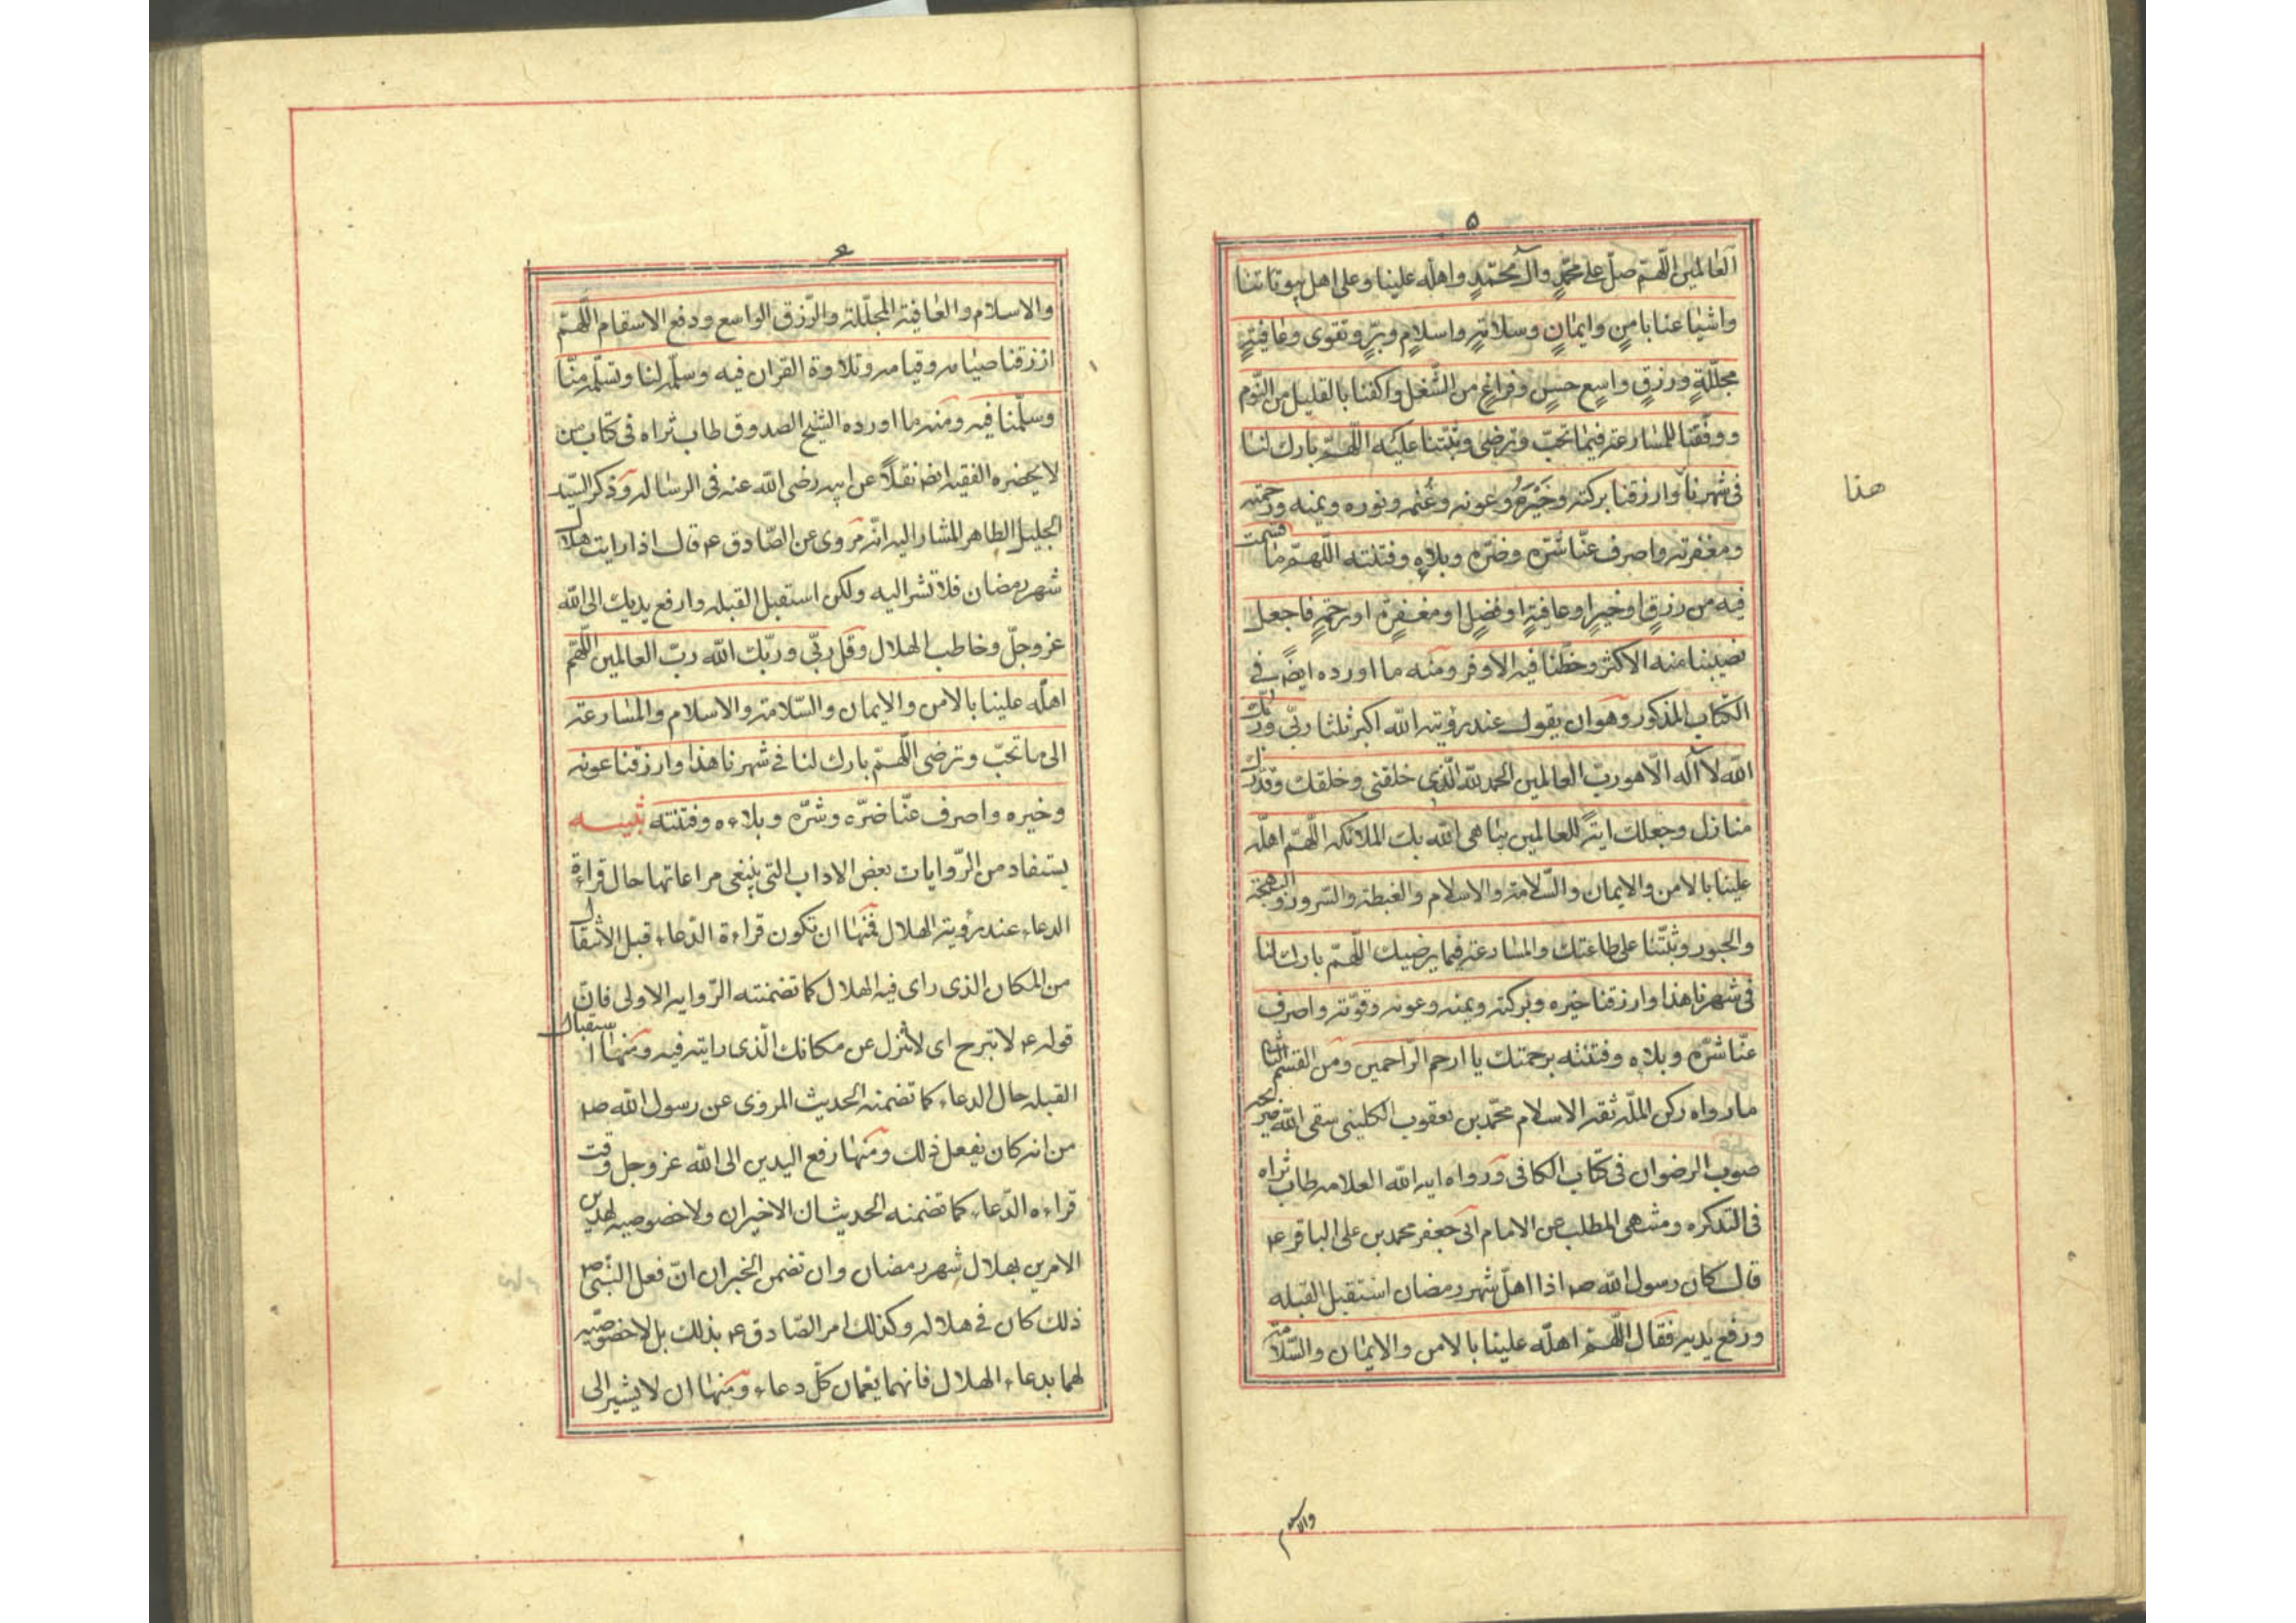 ۵
العالمين اللّهمّ صلّ على محمّدٍ وآل محمّدٍ واهله علينا وعلى اهل بيوتاتنا
واشياعنا بامنٍ وايمانٍ وسلامةٍ واسلامٍ وبرٍّ وتقوى وعافيةٍ
مجلّلةٍ ورزقٍ واسعٍ حسنٍ وفراغٍ من الشّغل واكفنا بالقليل من النّوم
ووفّقنا للمسارعة فيما تحبّ وترضى وثبّتنا عليه اللّهمّ بارك لنا
فى شهرنا وارزقنا بركته وخَيْرَهُ وعونه وغُنمه ونوره ويمنه ورحمته
هذا
ومغفرته واصرف عنّا شرّه وضرّه وبلاه وفتنته اللّهمّ ما قسمت
فيه من رزقٍ اوخيرٍ اوعافيةٍ اوفضلٍ اومغفرةٍ اورحمةٍ فاجعل
نصيبنا منه الاكثر وحظّنا فيه الاوفر ومنه ما اورده ايضً فى
الكتاب المذكور وهو ان يقول عند رؤيته الله اكبر ثلثا ربّى وربّك
الله لا اله الّا هو ربّ العالمين الحمد لله الّذى خلقنى وخلقك وقدّرك
منازل وجعلك ايةً للعالمين يباهى الله بك الملائكه اللّهمّ اهلّه
علينا بالامن والايمان والسّلامة والاسلام والغبطة والسّرور والبهجة
والحبور وثبّتنا على طاعتك والمسارعة فيما يرضيك اللّهمّ بارك لنا
فى شهرنا هذا وارزقنا خيره وبركته ويمنه وعونه وقوّته واصرف
عنّا شرّه وبلاه وفتنته برحمتك يا ارحم الرّاحمين ومن القسم الثانى
مارواه ركن الملّه ثقة الاسلام محمّد بن يعقوب الكلينى سقى الله ضريحه
صوب الرضوان فى كتاب الكافى ورواه اية الله العلامه طاب ثراه
فى التذكره ومنتهى المطلب عن الامام ابى جعفر محمد بن على الباقر ع
قال كان رسول الله ص اذا اهلّ شهر رمضان استقبل القبله
ورفع يديه فقال اللّهمّ اهلّه علينا بالامن والايمان والسّلامة
والاسلام
۶
والاسلام والعافية المجلّلة والرّزق الواسع ودفع الاسقام اللّهمّ
ارزقنا صيامه وقيامه وتلاوة القران فيه وسلّمه لنا وتسلّمه منّا
وسلّمنا فيه ومنه ما اورده الشيخ الصدوق طاب ثراه فى كتاب من
لا يحضره الفقيه ايض نقلاً عن ابيه رضى الله عنه فى الرساله وذكر السّيد
الجليل الطاهر المشار اليه انّه مروى عن الصّادق ع قال اذا رايت هلال
شهر رمضان فلا تشر اليه ولكن استقبل القبله وارفع يديك الى الله
عزوجلّ وخاطب الهلال وقل ربّى وربّك الله ربّ العالمين اللّهمّ
اهلّه علينا بالامن والايمان والسّلامة والاسلام والمسارعة
الى ما تحبّ وترضى اللّهمّ بارك لنا فى شهرنا هذا وارزقنا عونه
وخيره واصرف عنّا ضرّه وشرّه وبلاءه وفتنته تنبيه
يستفاد من الرّوايات بعض الاداب التى ينبغى مراعاتها حال قراءة
الدعاء عند رؤية الهلال فمنها ان تكون قراءة الدّعاء قبل الانتقال
من المكان الذى راى فيه الهلال كما تضمنته الرّوايه الاولى فانّ
قوله ع لا تبرح اى لا تزل عن مكانك الّذى رايته فيه ومنها استقبال
القبله حال الدعاء كما تضمنه الحديث المروى عن رسول الله ص
من انه كان يفعل ذلك ومنها رفع اليدين الى الله عزوجل وقت
قراءه الدّعاء كما تضمنه الحديثان الاخيران ولا خصوصيه لهذين
الامرين بهلال شهر رمضان وان تضمن الخبران انّ فعل النّبىّ ص
ذلك كان فى هلاله وكذلك امر الصّادق ع بذلك بل لا خصوصيّه
لهما بدعاء الهلال فانهما يعمان كلّ دعاء ومنها ان لا يشير الى